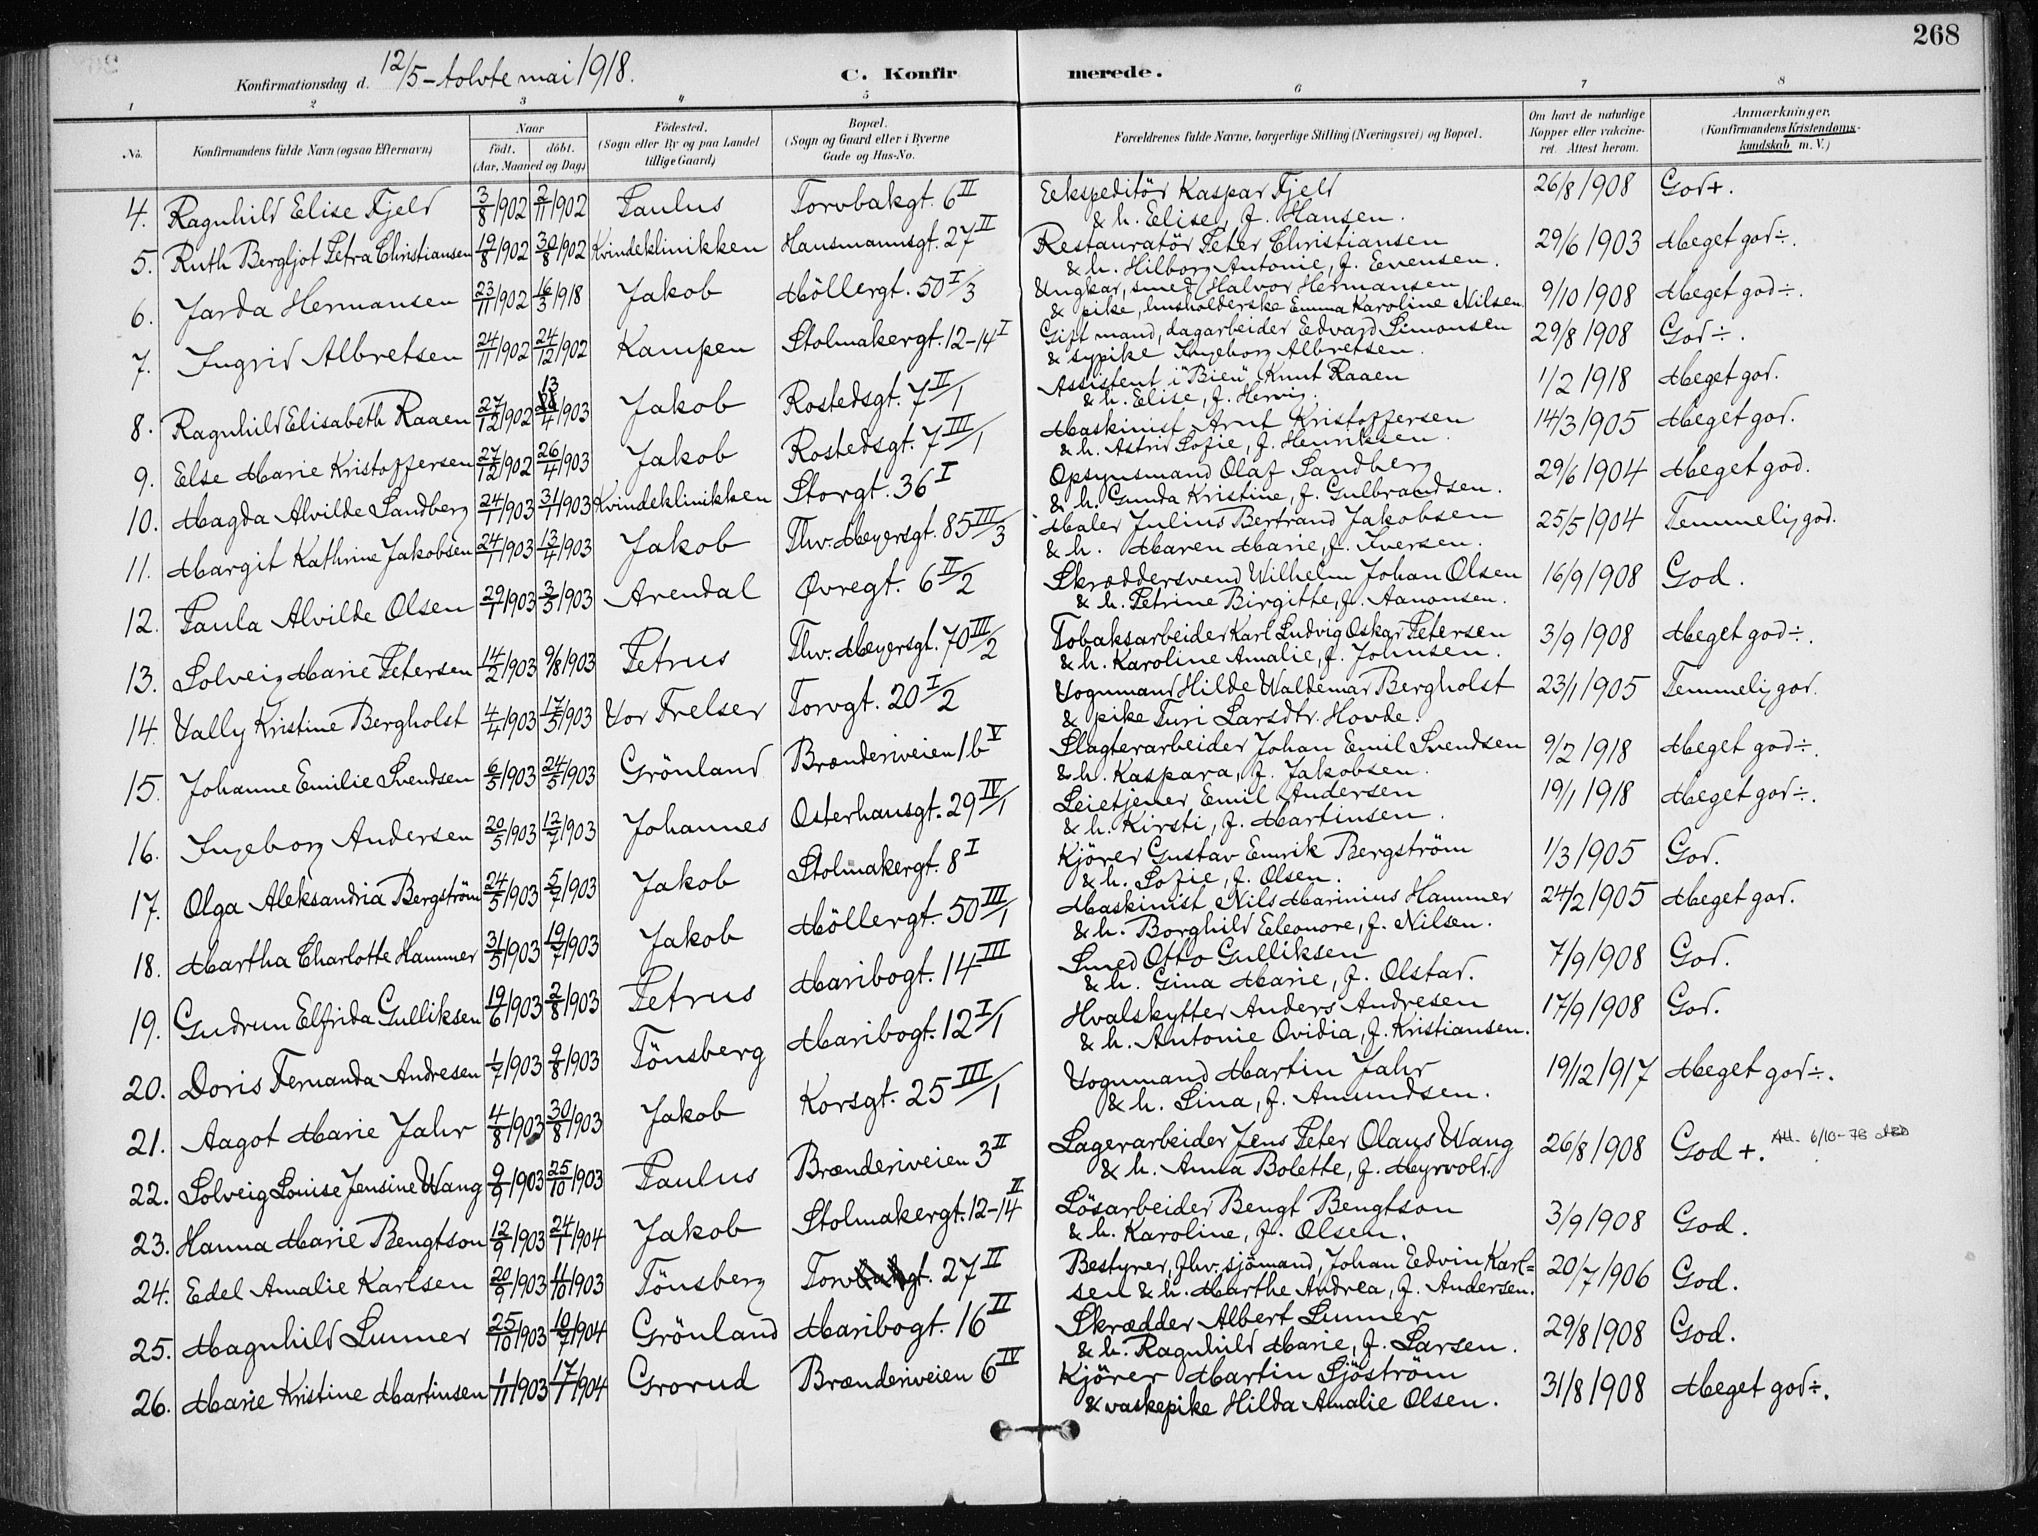 268
Konfirmationsdag d. 12/5 - tolvte mai 1918.
C. Konfirmerede.
1 2 3 4 5 6 7 8
No. Konfirmandens fulde Navn (ogsaa Efternavn) Naar født. døbt. (Aar, Maaned og Dag) Fødested. (Sogn eller By og paa Landet tillige Gaard) Bopæl. (Sogn og Gaard eller i Byerne Gade og Hus-No. Forældrenes fulde Navne, borgerlige Stilling (Næringsvei) og Bopæl. Om havt de naturlige Kopper eller vakcineret. Attest herom. Anmærkninger. (Konfirmandens Kristendomskundskab m. V.)
4. Ragnhild Elise Fjeld 3/8 1902 2/11 1902 Paulus Torvbakgt. 6 II Eekspeditör Kaspar Fjeld 26/8 1908 God+.
& h. Elise, f. Hansen.
5. Ruth Bergljot Petra Christiansen 19/8 1902 30/8 1902 Kvindeklinikken Hausmannsgt. 27 II Restauratör Peter Christiansen 29/6 1903 Meget god÷.
& h. Hilborg Antonie, f. Evensen.
6. Jarda Hermansen 23/11 1902 16/3 1918 Jakob Möllergt. 50 I/3 Ungkar, smed Halvor Hermansen 9/10 1908 Meget god÷.
& pike, husholderske Emma Karoline Nilsen.
7. Ingrid Albretsen 24/11 1902 24/12 1902 Kampen Stolmakergt. 12-14 I Gift mand, dagarbeider Edvard Simonsen 29/8 1908 God÷.
& sypike Ingeborg Albretsen.
8. Ragnhild Elisabeth Raaen 27/12 1902 13/4 1903 Jakob Rostedsgt. 7 II/1 Assistent i "Bien" Knut Raaen 1/2 1918 Meget god.
& h. Elise, f. Hervig.
9. Else Marie Kristoffersen 27/12 1902 26/4 1903 Jakob Rostedsgt. 7 III/1 Maskinist Arnt Kristoffersen 14/3 1905 Meget god.
& h. Astrid Sofie, f. Henriksen.
10. Magda Alvilde Sandberg 24/1 1903 3/4 1903 Kvindeklinikken Storgt. 36 I Opsynsmand Olaf Sandberg 29/6 1904 Meget god.
& h. Gunda Kristine, f. Gulbrandsen.
11. Margit Kathrine Jakobsen 24/1 1903 13/4 1903 Jakob Thv. Meyersgt. 85 III/3 Maler Julius Bertrand Jakobsen 25/5 1904 Temmelig god.
& h. Maren Marie, f. Iversen.
12. Paula Alvilde Olsen 29/1 1903 3/5 1903 Arendal Øvregt. 6 II/2 Skræddersvend Wilhelm Johan Olsen 16/9 1908 God.
& h. Petrine Birgitte, f. Aanonsen.
13. Solveig Marie Petersen 14/2 1903 9/8 1903 Petrus Thv. Meyersgt. 70 III/2 Tobaksarbeider Karl Ludvig Oskar Petersen 3/9 1908 Meget god÷.
& h. Karoline Amalie, f. Johnsen.
14. Vally Kristine Bergholst 4/4 1903 17/5 1903 Vor Frelser Torvgt. 20 I/2 Vognmand Hilde Waldemar Bergholst 23/1 1905 Temmelig god.
& pike Turi Larsdtr. Hovde.
15. Johanne Emilie Svendsen 6/5 1903 24/5 1903 Grönland Brænderiveien 1b V Slagterarbeider Johan Emil Svendsen 9/2 1918 Meget god÷.
& h. Kaspara, f. Jakobsen.
16. Ingeborg Andersen 20/5 1903 12/7 1903 Johannes Osterhausgt. 29 IV/1 Leietjener Emil Andersen 19/1 1918 Meget god÷.
& h. Kirsti, f. Martinsen.
17. Olga Aleksandria Bergström 24/5 1903 5/7 1903 Jakob Stolmakergt. 8 I Kjörer Gustav Emrik Bergström 1/3 1905 God.
& h. Sofie, f. Olsen.
18. Martha Charlotte Hammer 31/5 1903 19/7 1903 Jakob Möllergt. 50 III/1 Maskinist Nils Marinius Hammer 24/2 1905 Meget god.
& h. Borghild Eleonore, f. Nilsen.
19. Gudrun Elfrida Gulliksen 19/6 1903 2/8 1903 Petrus Maribogt. 14 III Smed Otto Gulliksen 7/9 1908 God.
& h. Gina Marie, f. Olstad.
20. Doris Fernanda Andresen 1/7 1903 9/8 1903 Tönsberg Maribogt. 12 I/1 Hvalskytter Anders Andresen 17/9 1908 God.
& h. Antonie Ovidia, f. Kristiansen.
21. Aagot Marie Jahr 4/8 1903 30/8 1903 Jakob Korsgt. 25 III/1 Vognmand Martin Jahr 19/12 1917 Meget god÷.
& h. Lina, f. Amundsen.
22. Solveig Louise Jensine Wang 9/9 1903 25/10 1903 Paulus Brænderiveien 3 II Lagerarbeider Jens Peter Olaus Wang 26/8 1908 God +. Att. 6/10-78
& h. Anna Bolette, f. Myrvold.
23. Hanna Marie Bengtson 12/9 1903 24/1 1904 Jakob Stolmakergt. 12-14 II Lösarbeider Bengt Bengtson 3/9 1908 God.
& h. Karoline, f. Olsen.
24. Edel Amalie Karlsen 20/9 1903 4/10 1903 Tönsberg Torvbakgt. 27 II Bestyrer, fhv. sjömand, Johan Eedvin Karl= 20/7 1906 God.
sen & h. Marthe Andrea, f. Andersen.
25. Magnhild Lunner 25/10 1903 10/7 1904 Grönland Maribogt. 16 II Skrædder Albert Lunner 29/8 1908 God.
& h. Ragnhild Marie, f. Larsen.
26. Marie Kristine Martinsen 1/11 1903 17/1 1904 Grorud Brænderiveien 6 IV Kjörer Martin Sjöström 31/8 1908 Meget god÷.
& vaskepike Hilda Amalie Olsen.